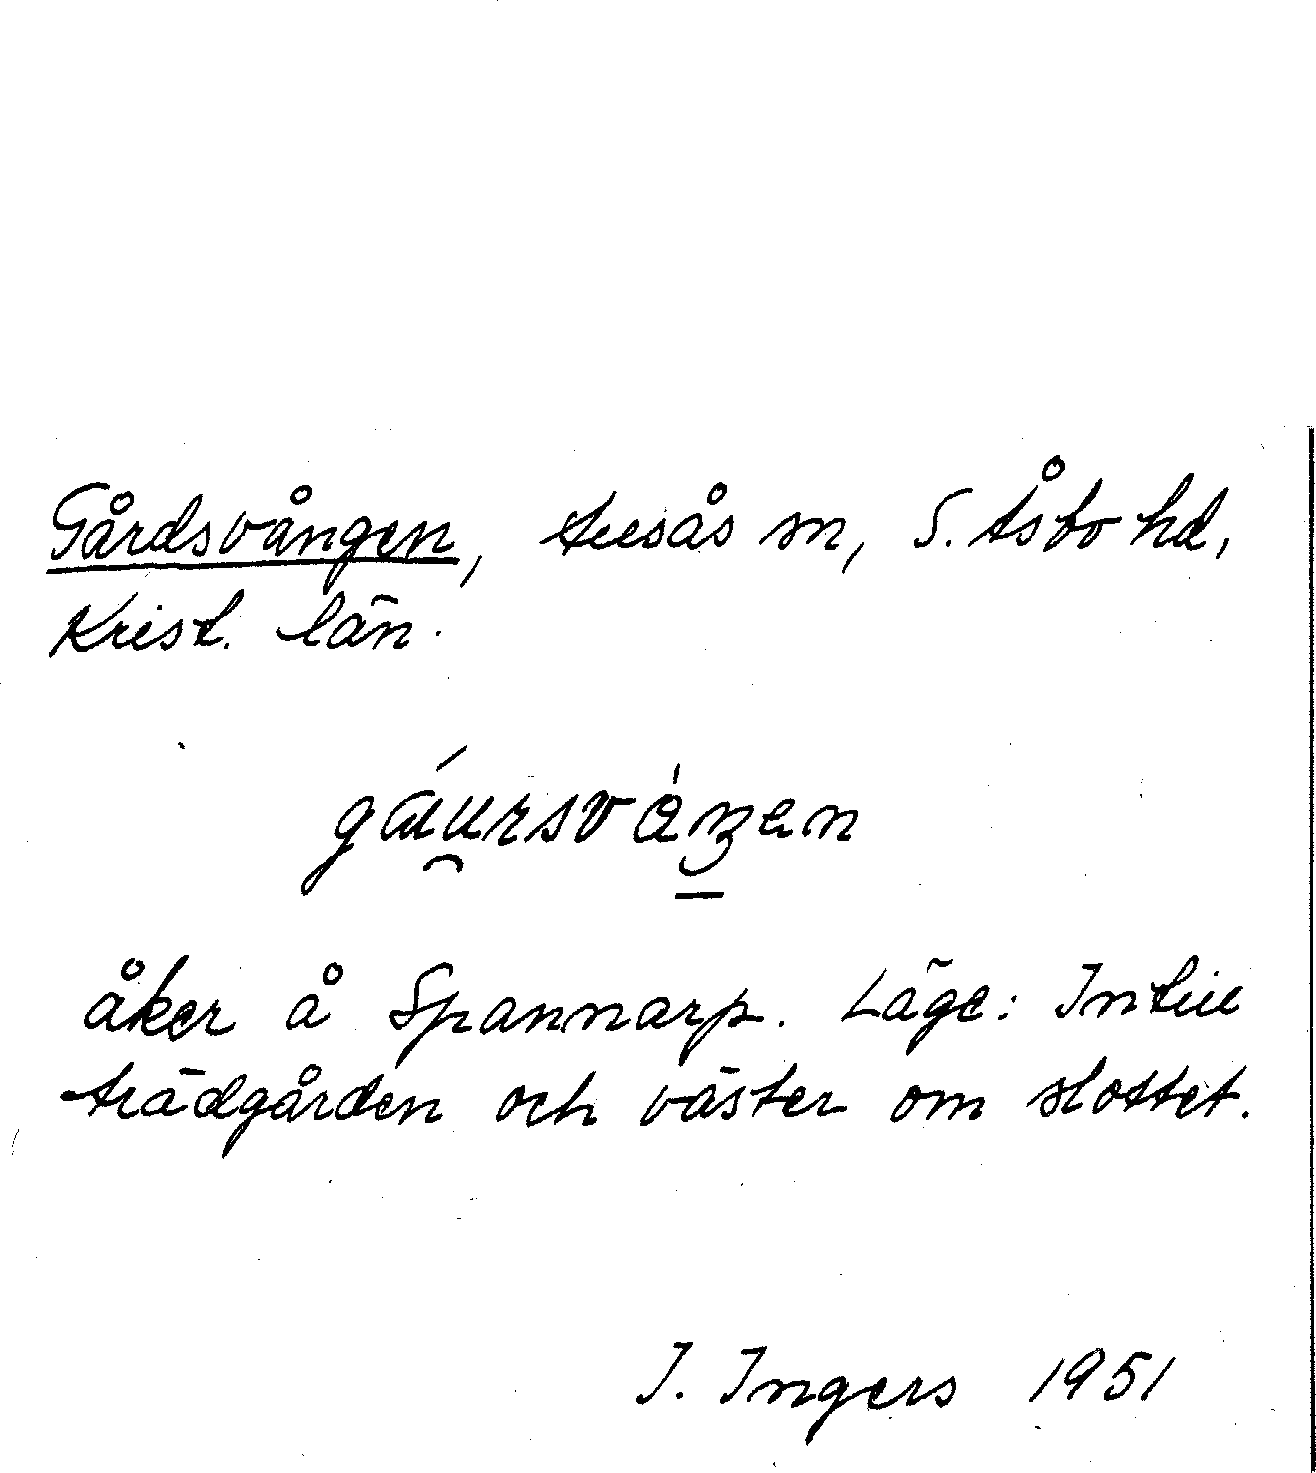 Gårdsvången, Ausås sn, S. Åsbo hd,
Krist. län.
åker å Spannarp. Läge: Intill
trädgården och väster om slottet.
I. Ingers 1951